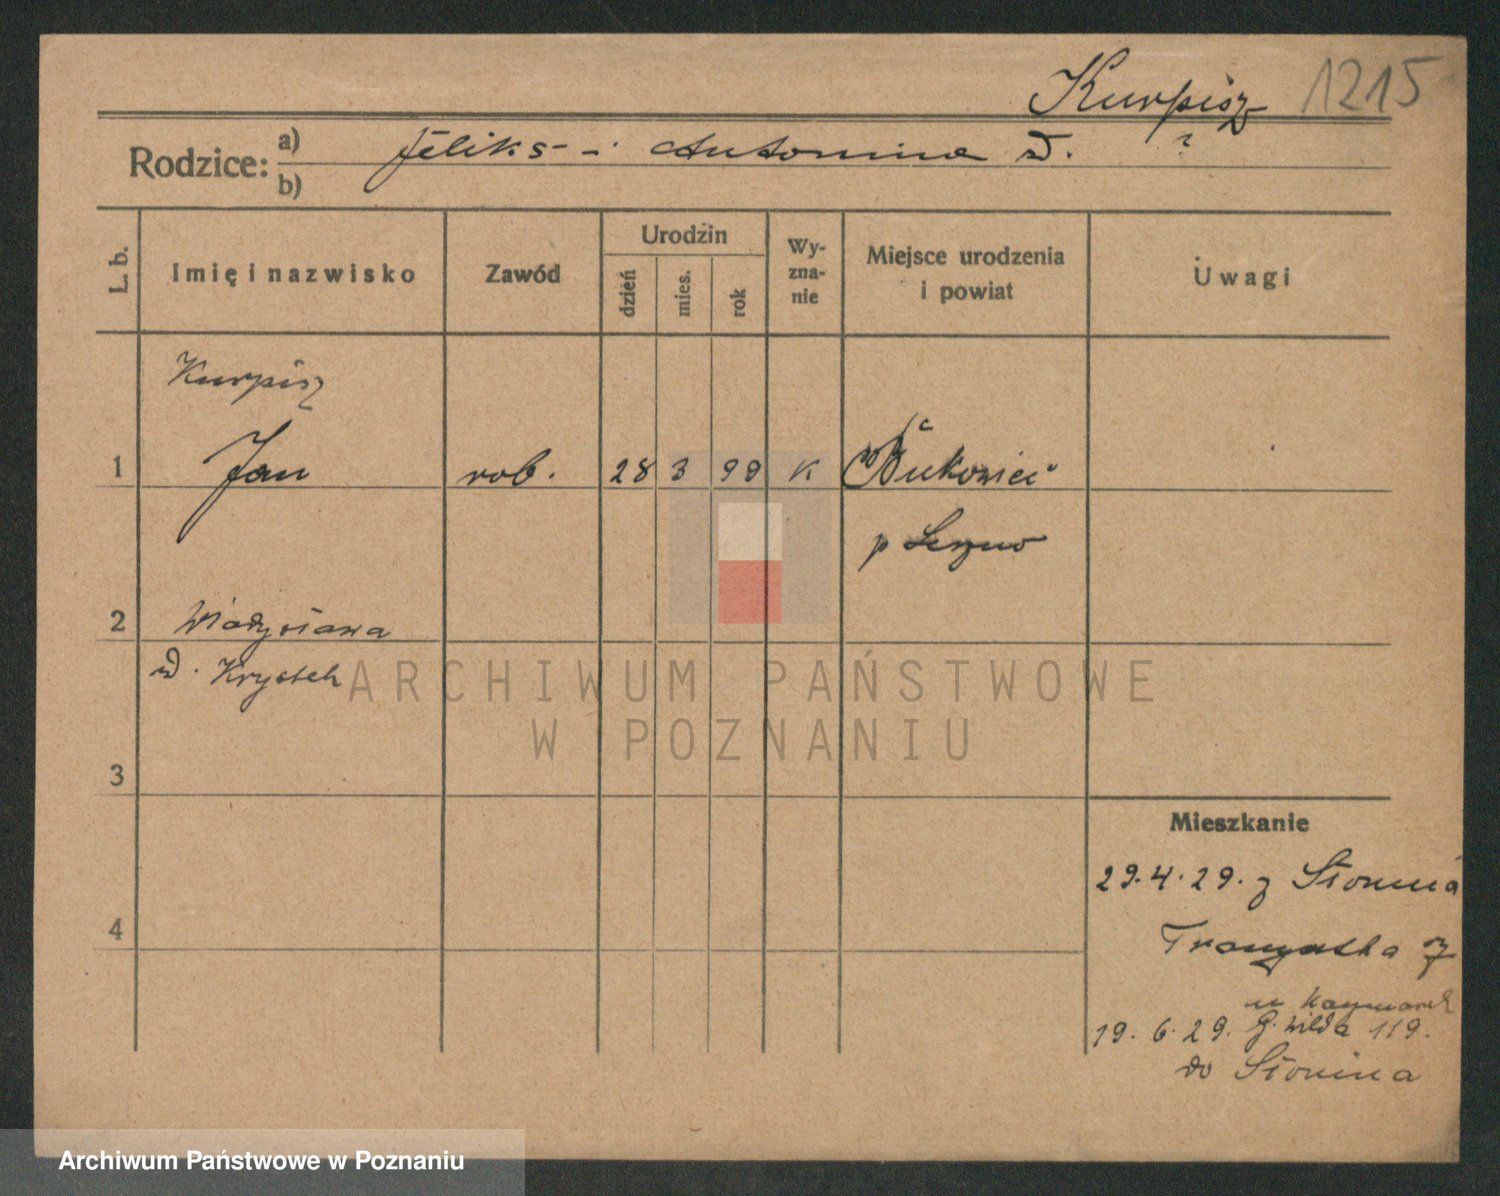 Kurpisz 1215
Rodzice: a) Feliks i Antonina d. ?
b)
L. b.
Imię i nazwisko
Zawód
Urodzin
dzień
mies.
rok
Wy-
zna-
nie
Miejsce urodzenia
i powiat
Uwagi
Kurpisz
1 Jan rob. 28 3 99 K Bukowiec
p
2 Władysława
d. Krystek
ARCHIWUM PAŃSTWOWE
W POZNANIU
3
Mieszkanie
29.4.29. z Słonina
4
u Kaczmarek
19.6.29. G. Wilda 119.
do Słonina
Archiwum Państwowe w Poznaniu